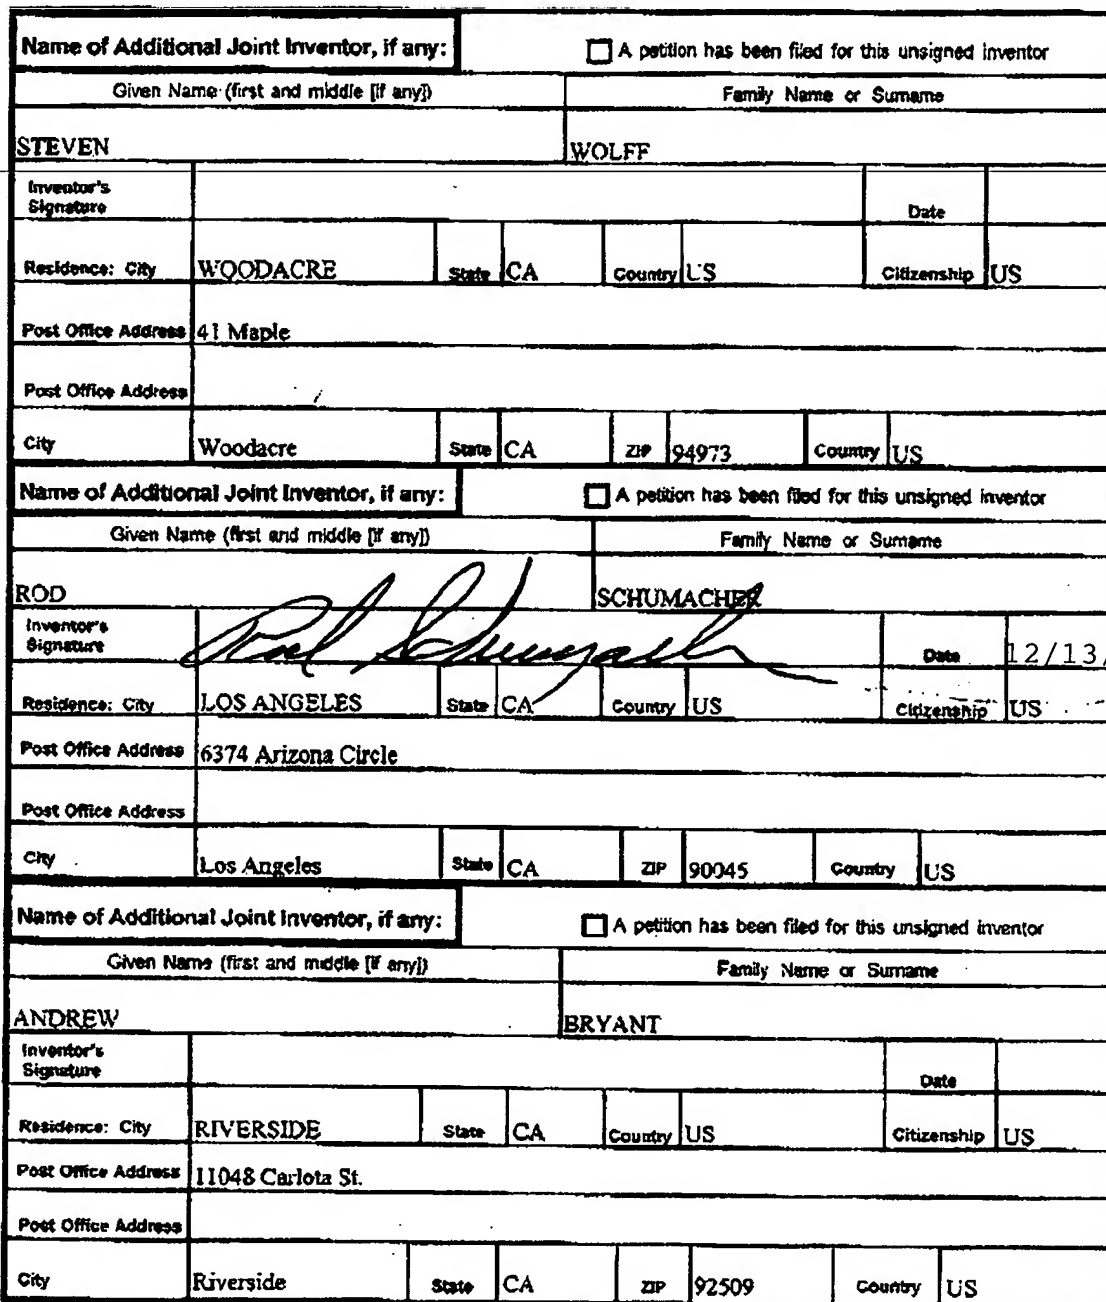 Name of Additional Joint Inventor, if any: A petition has been filed for this unsigned inventor
Given Name (first and middle [if any]) Family Name or Surname
STEVEN WOLFF
Inventor's
Signature Date
Residence: City WOODACRE State CA Country US Citizenship US
Post Office Address 41 Maple
Post Office Address
City Woodacre State CA ZIP 94973 Country US
Name of Additional Joint Inventor, if any: A petition has been filed for this unsigned inventor
Given Name (first and middle [if any]) Family Name or Surname
ROD SCHUMACHER
Inventor's
Signature Rod Schumacher Date 12/13/
Residence: City LOS ANGELES State CA Country US Citizenship US
Post Office Address 6374 Arizona Circle
Post Office Address
City Los Angeles State CA ZIP 90045 Country US
Name of Additional Joint Inventor, if any: A petition has been filed for this unsigned inventor
Given Name (first and middle [if any]) Family Name or Surname
ANDREW BRYANT
Inventor's
Signature Date
Residence: City RIVERSIDE State CA Country US Citizenship US
Post Office Address 11048 Carlota St.
Post Office Address
City Riverside State CA ZIP 92509 Country US